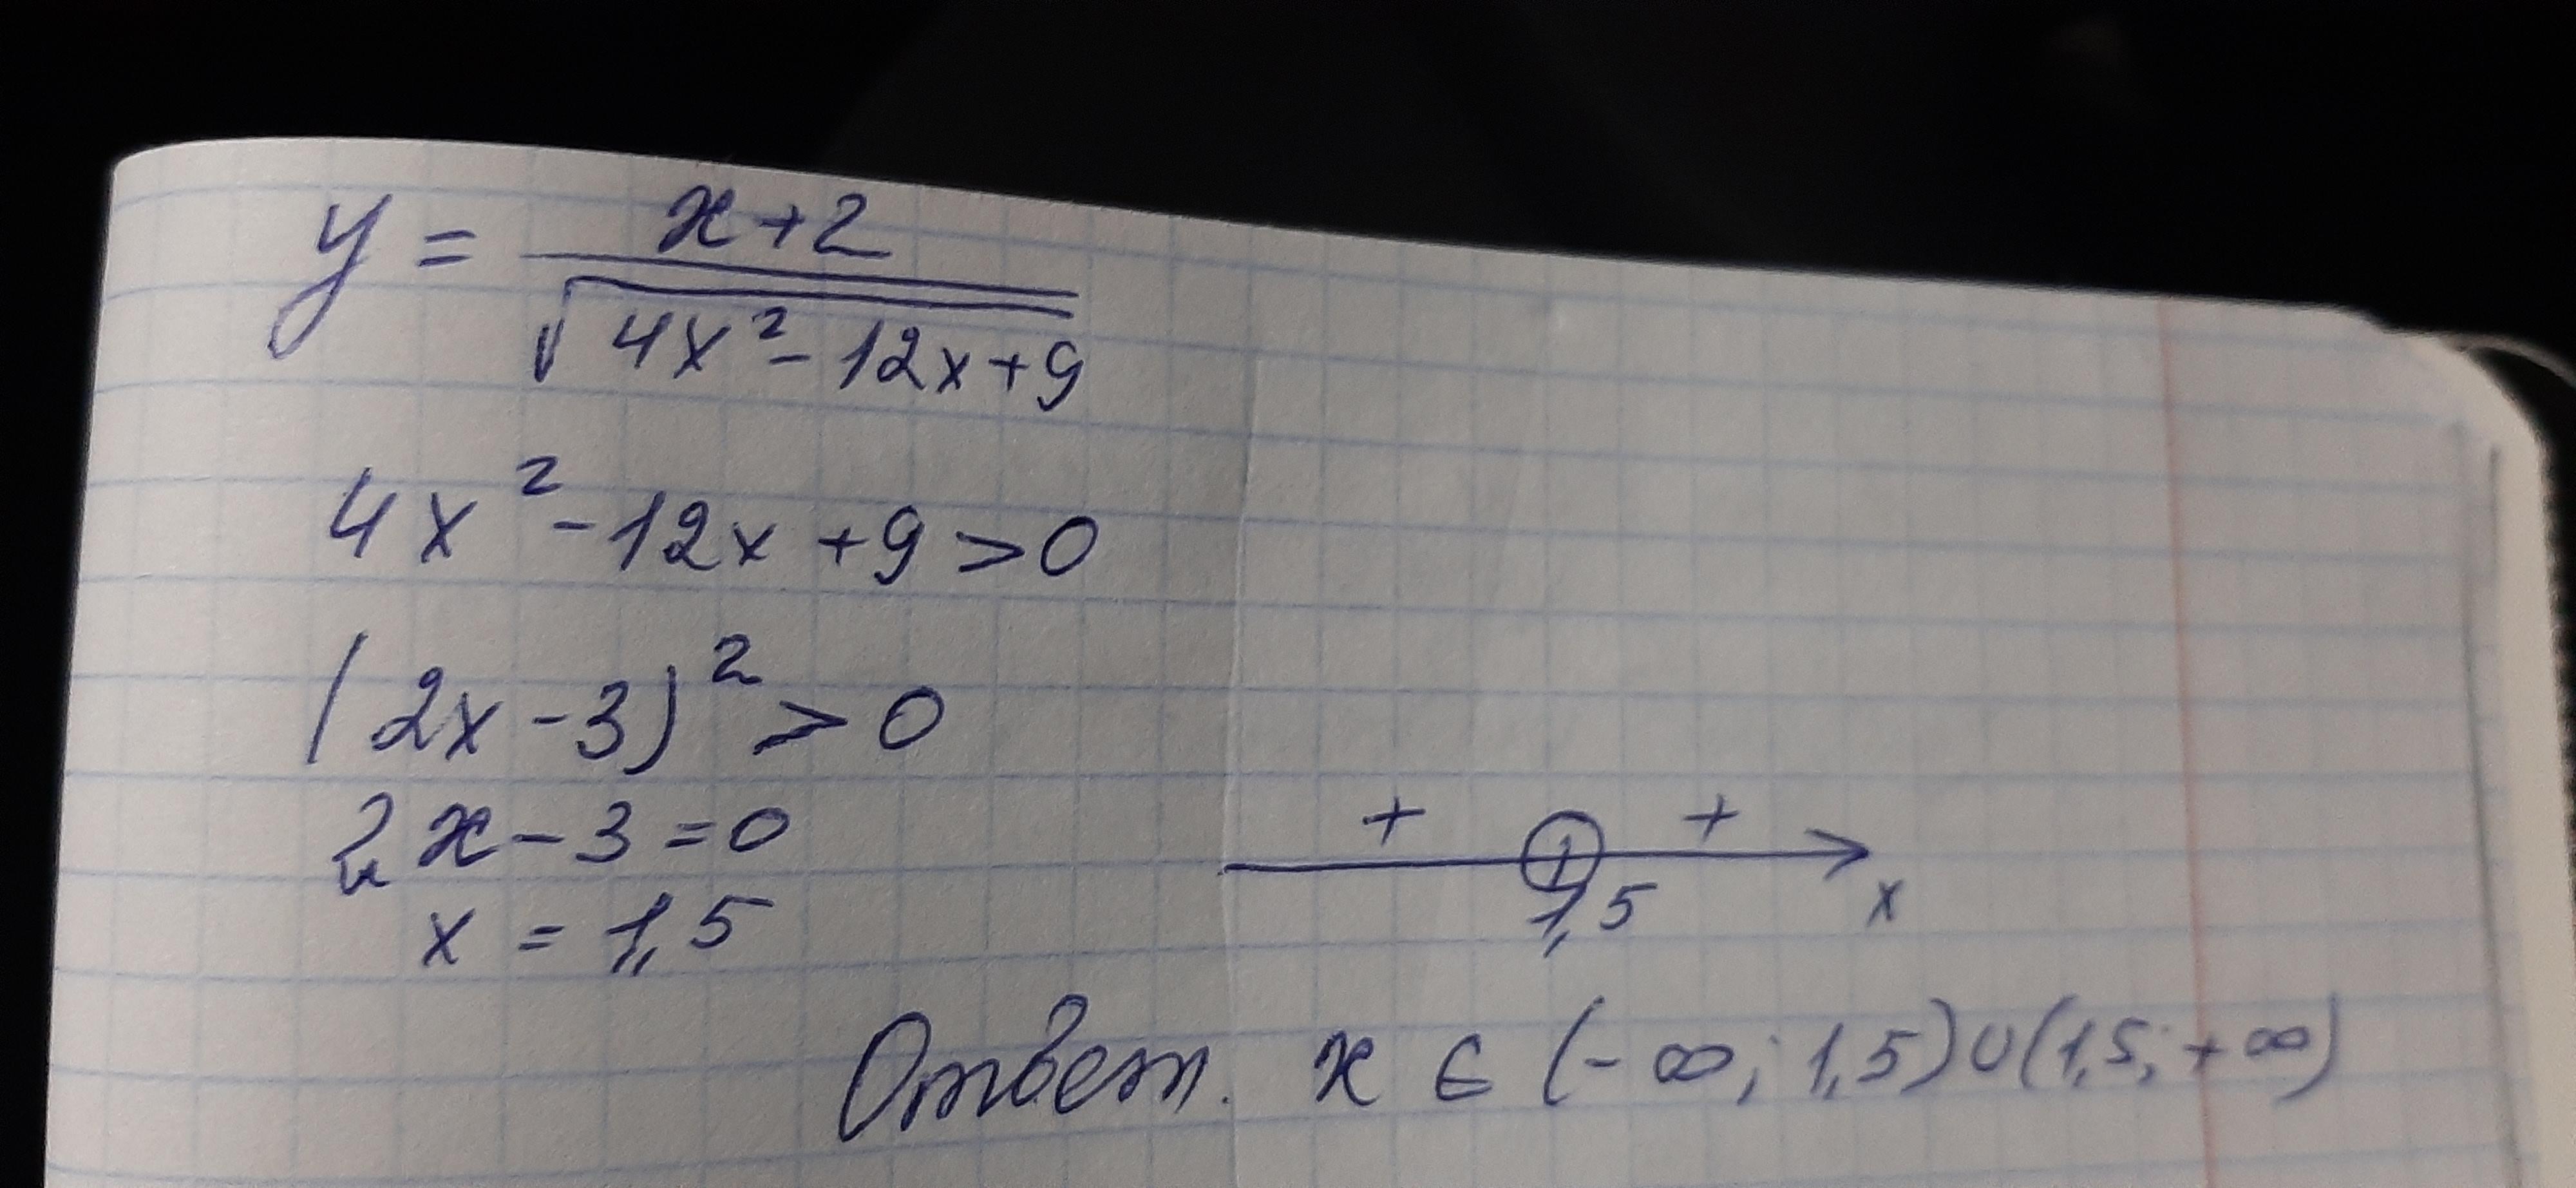 y = x+2 / √(4x² - 12x+9)
4x² - 12x + 9 > 0
(2x - 3)² > 0
2x - 3 = 0
x = 1,5
+ +
1,5 x
Ответ. x ∈ (-∞; 1,5)∪(1,5; +∞)